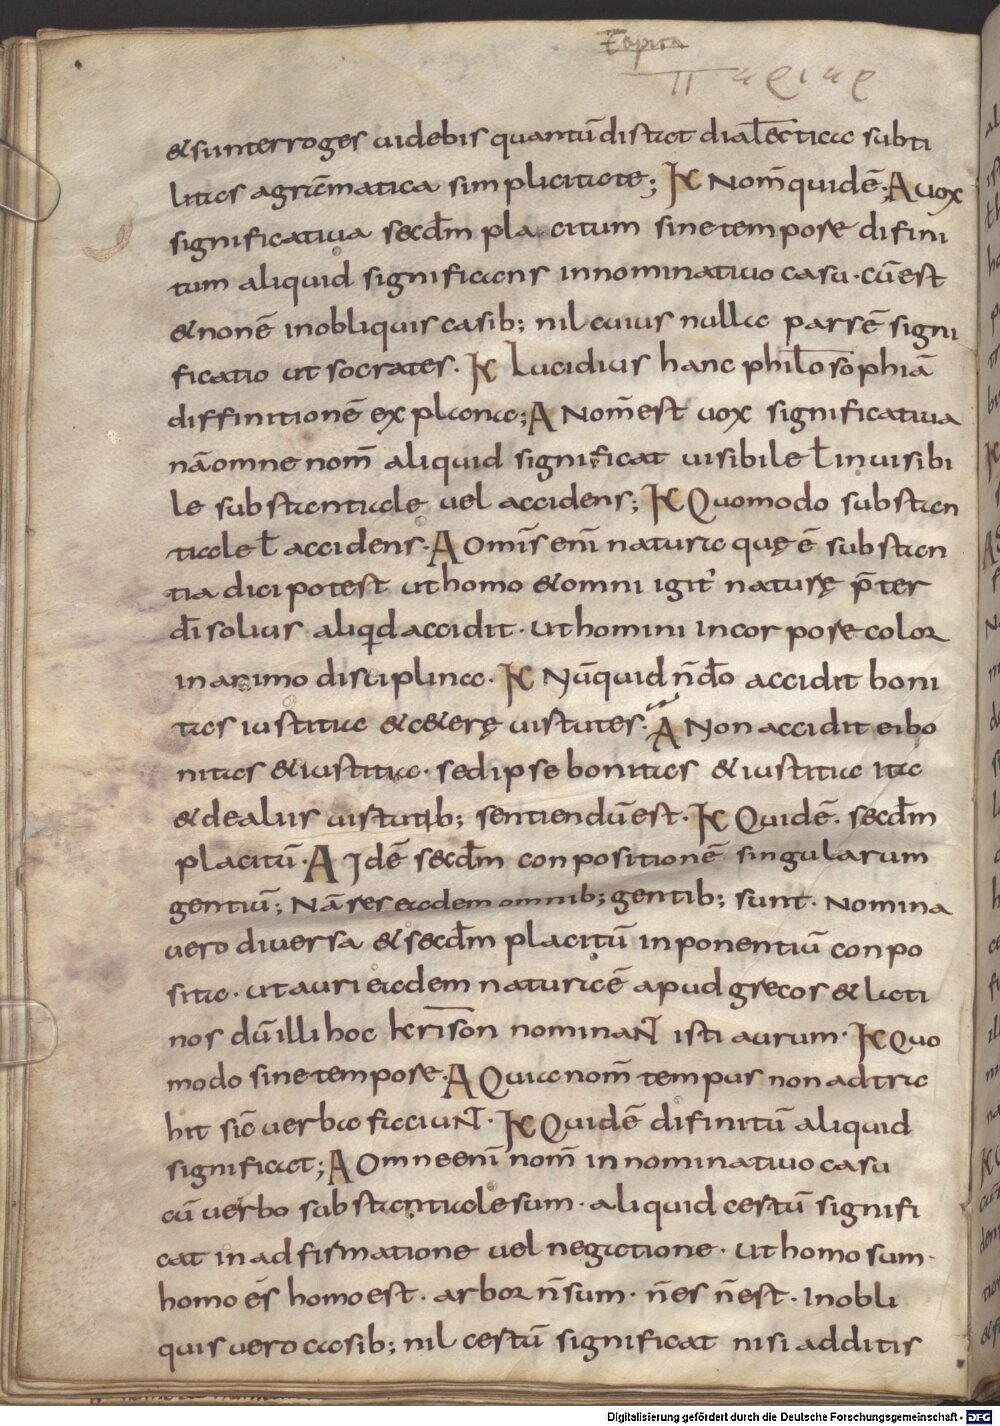 Topica
&sunterroges uidebis quantūdistat dialectica subti
litas agrāmatica simplicitate; K Nom̄quidē; A uox
significatiua secd̄m placitum sinetempore difini
tum aliquid significans innominatiuo casu. cūest
&nonē inobliquis casib; nil cuius nulla parsē signi
ficatio ut socrates. K Lucidius hanc philosophiā
diffinitionē explana; A Nom̄est uox significatiua
nāomne nom̄ aliquid significat uisibile ł inuisibi
le substantiale uel accidens; K Quomodo substan
tiale ł accidens. A Omīs enī natura quę ē substan
tia dici potest ut homo &omni igit᷑ naturę p̄ter
dīsolius aliqd accidit. ut homini incorpore color
inanimo disciplina. K Nūquid n̄dō accidit boni
tas iustitia &c&erę uirtutes. A Non accidit ei bo
nitas &iustitia. sed ipse bonitas &iustitia ita
&dealiis uirtutib; sentiendūest. K Quidē. secd̄m
placitū. A Idē secd̄m conpositionē singularum
gentiū; Nā res eadem omnib; gentib; sunt. Nomina
uero diuersa &secd̄m placitū inponentiū conpo
sita. ut auri eadem naturaē apud grecos &lati
nos dūilli hoc krison nominaNT isti aurum. K Quo
modo sinetempore. A Quia nom̄ tempus non adtra
hit sic̄ uerba faciuNT. K Quidē difinitū aliquid
significat; A Omne enī nom̄ in nominatiuo casu
cū uerbo substantiale sum. aliquid certū signifi
cat in adfirmatione uel negatione. ut homo sum.
homo es̄ homo est. arbor n̄sum. n̄es n̄est. Inobli
quis uero casib; nil certū significat nisi additis
Digitalisierung gefördert durch die Deutsche Forschungsgemeinschaft - DFG